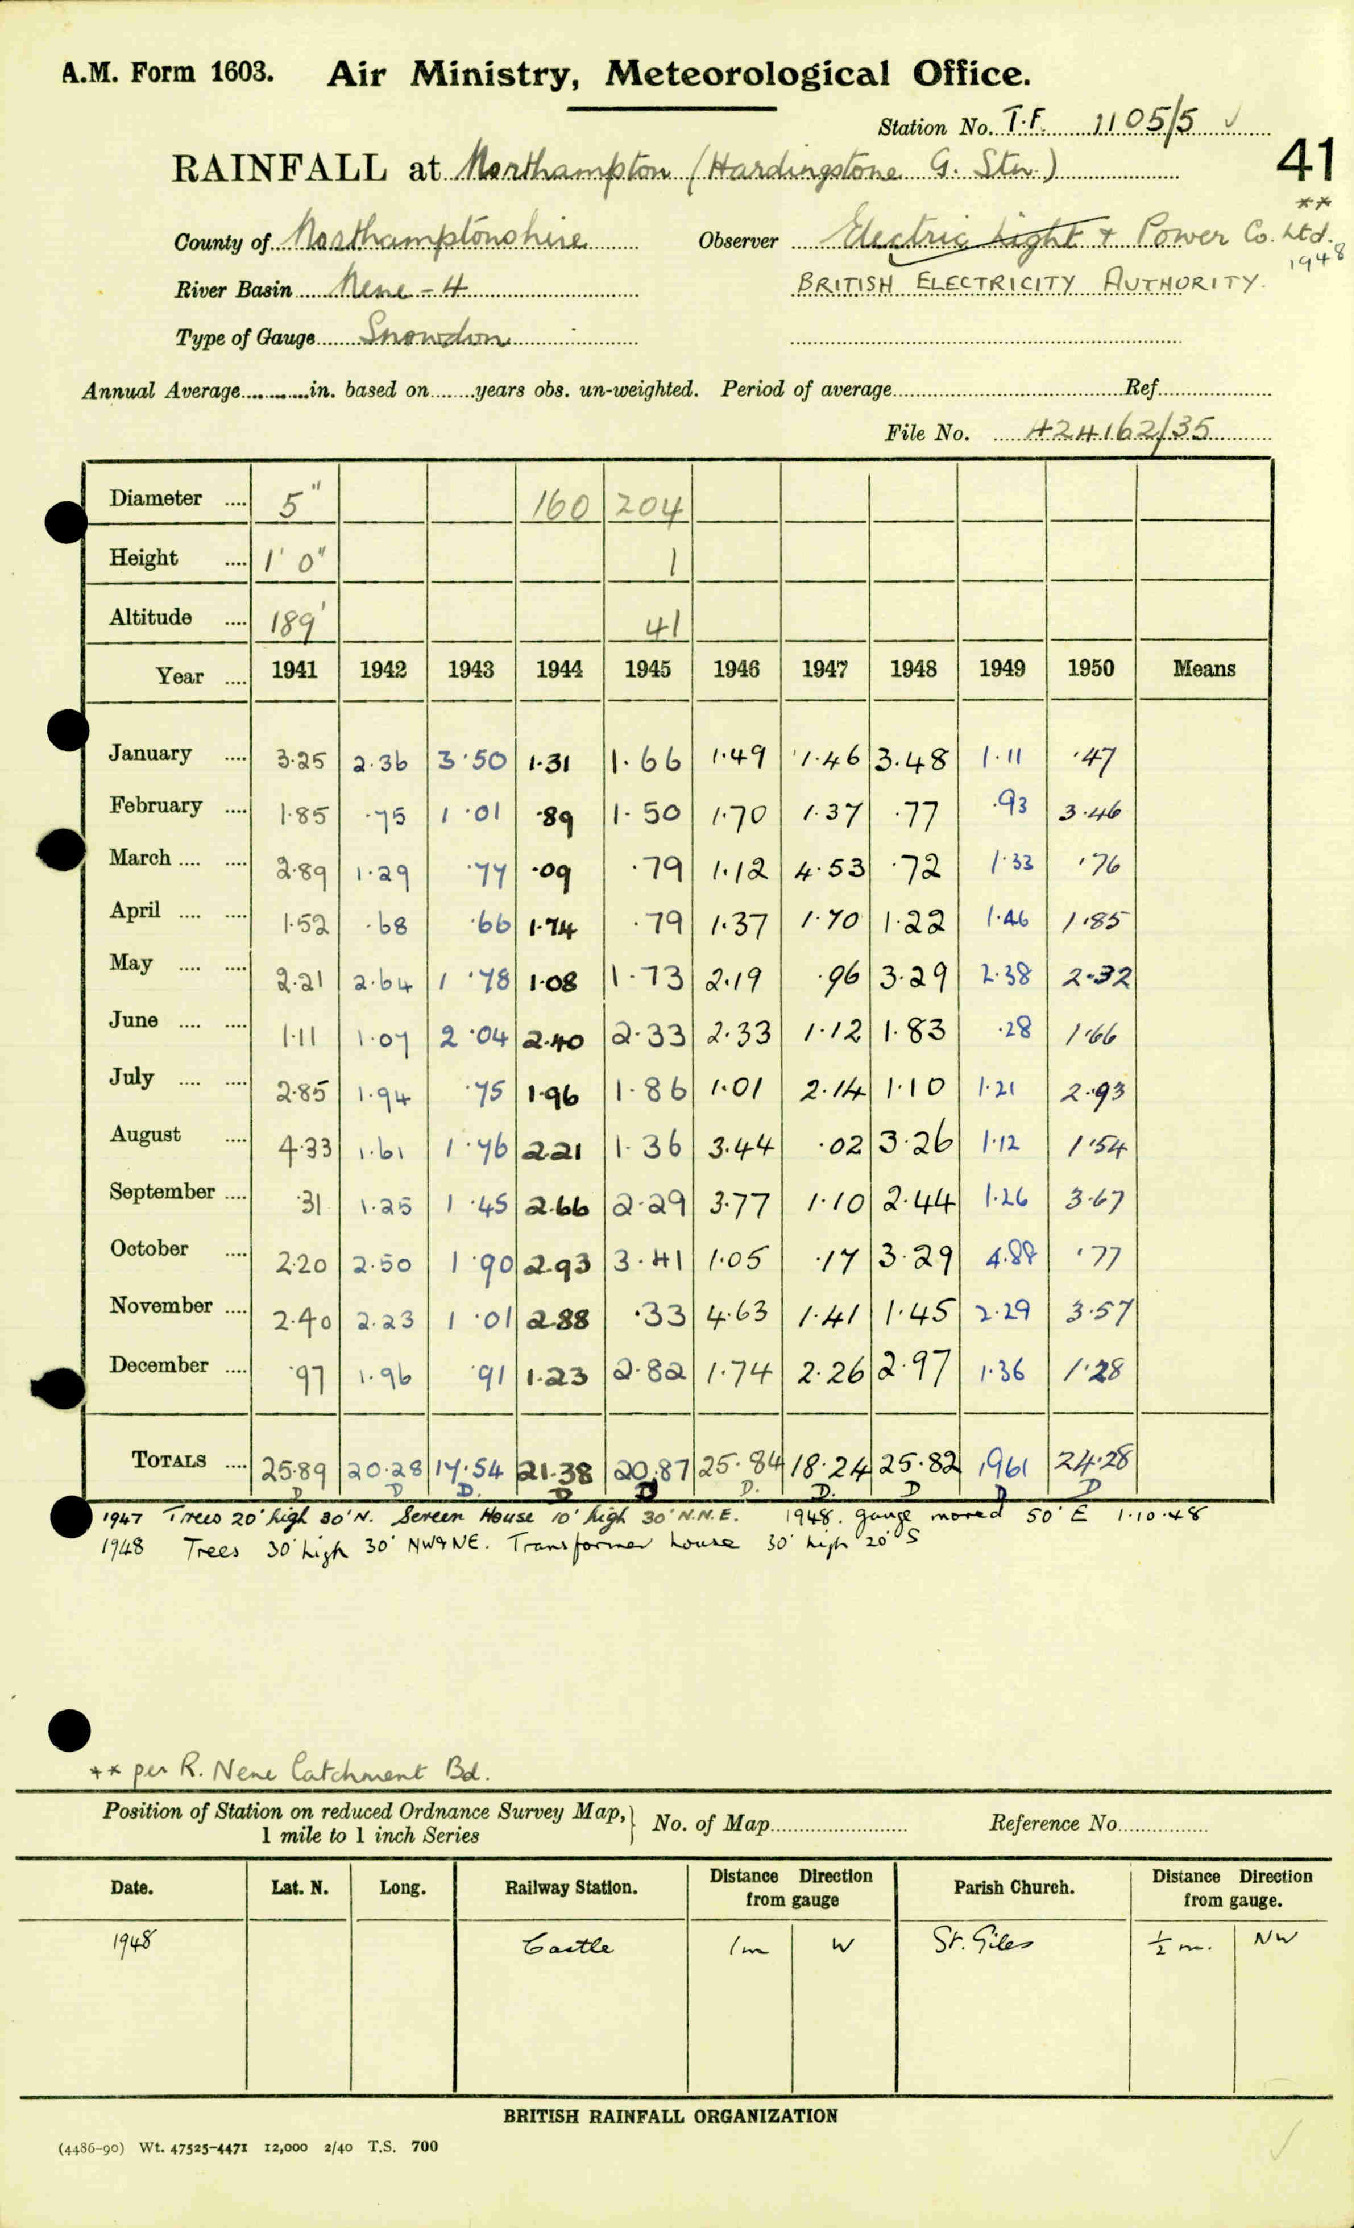 A.M. Form 1603. Air Ministry, Meteorological Office.
Station No. T.F. 1105/5 ✓
RAINFALL at Northampton (Hardingstone G. Stn.) 41
**
County of Northamptonshire Observer Electric Light + Power Co. Ltd.
1948
River Basin Nene - 4 BRITISH ELECTRICITY AUTHORITY.
Type of Gauge Snowdon
Annual Average in. based on years obs. un-weighted. Period of average Ref.
File No. 424162/35
Diameter 5" 160 204
Height 1' 0" 1
Altitude 189' 41
Year 1941 1942 1943 1944 1945 1946 1947 1948 1949 1950 Means
January 3.25 2.36 3.50 1.31 1.66 1.49 1.46 3.48 1.11 .47
February 1.85 .75 1.01 .89 1.50 1.70 1.37 .77 .93 3.46
March 2.89 1.29 .77 .09 .79 1.12 4.53 .72 1.33 .76
April 1.52 .68 .66 1.74 .79 1.37 1.70 1.22 1.46 1.85
May 2.21 2.64 1.78 1.08 1.73 2.19 .96 3.29 2.38 2.32
June 1.11 1.07 2.04 2.40 2.33 2.33 1.12 1.83 .28 1.66
July 2.85 1.94 .75 1.96 1.86 1.01 2.14 1.10 1.21 2.93
August 4.33 1.61 1.76 2.21 1.36 3.44 .02 3.26 1.12 1.54
September .31 1.25 1.45 2.66 2.29 3.77 1.10 2.44 1.26 3.67
October 2.20 2.50 1.90 2.93 3.41 1.05 .17 3.29 4.88 .77
November 2.40 2.23 1.01 2.88 .33 4.63 1.41 1.45 2.29 3.57
December .97 1.96 .91 1.23 2.82 1.74 2.26 2.97 1.36 1.28
TOTALS 25.89 20.28 17.54 21.38 20.87 25.84 18.24 25.82 1961 24.28
D D D. D D D. D. D D D
1947 Trees 20' high 30' N. Screen House 10' high 30' N.N.E. 1948. gauge moved 50' E 1.10.48
1948 Trees 30' high 30' NW & NE. Transformer house 30' high 20' S
** per R. Nene Catchment Bd.
Position of Station on reduced Ordnance Survey Map, 1 mile to 1 inch Series No. of Map Reference No.
Date. Lat. N. Long. Railway Station. Distance Direction from gauge Parish Church. Distance Direction from gauge.
1948 Castle 1m W St. Giles ½ m. NW
BRITISH RAINFALL ORGANIZATION
(4486-90) Wt. 47525-4471 12,000 2/40 T.S. 700